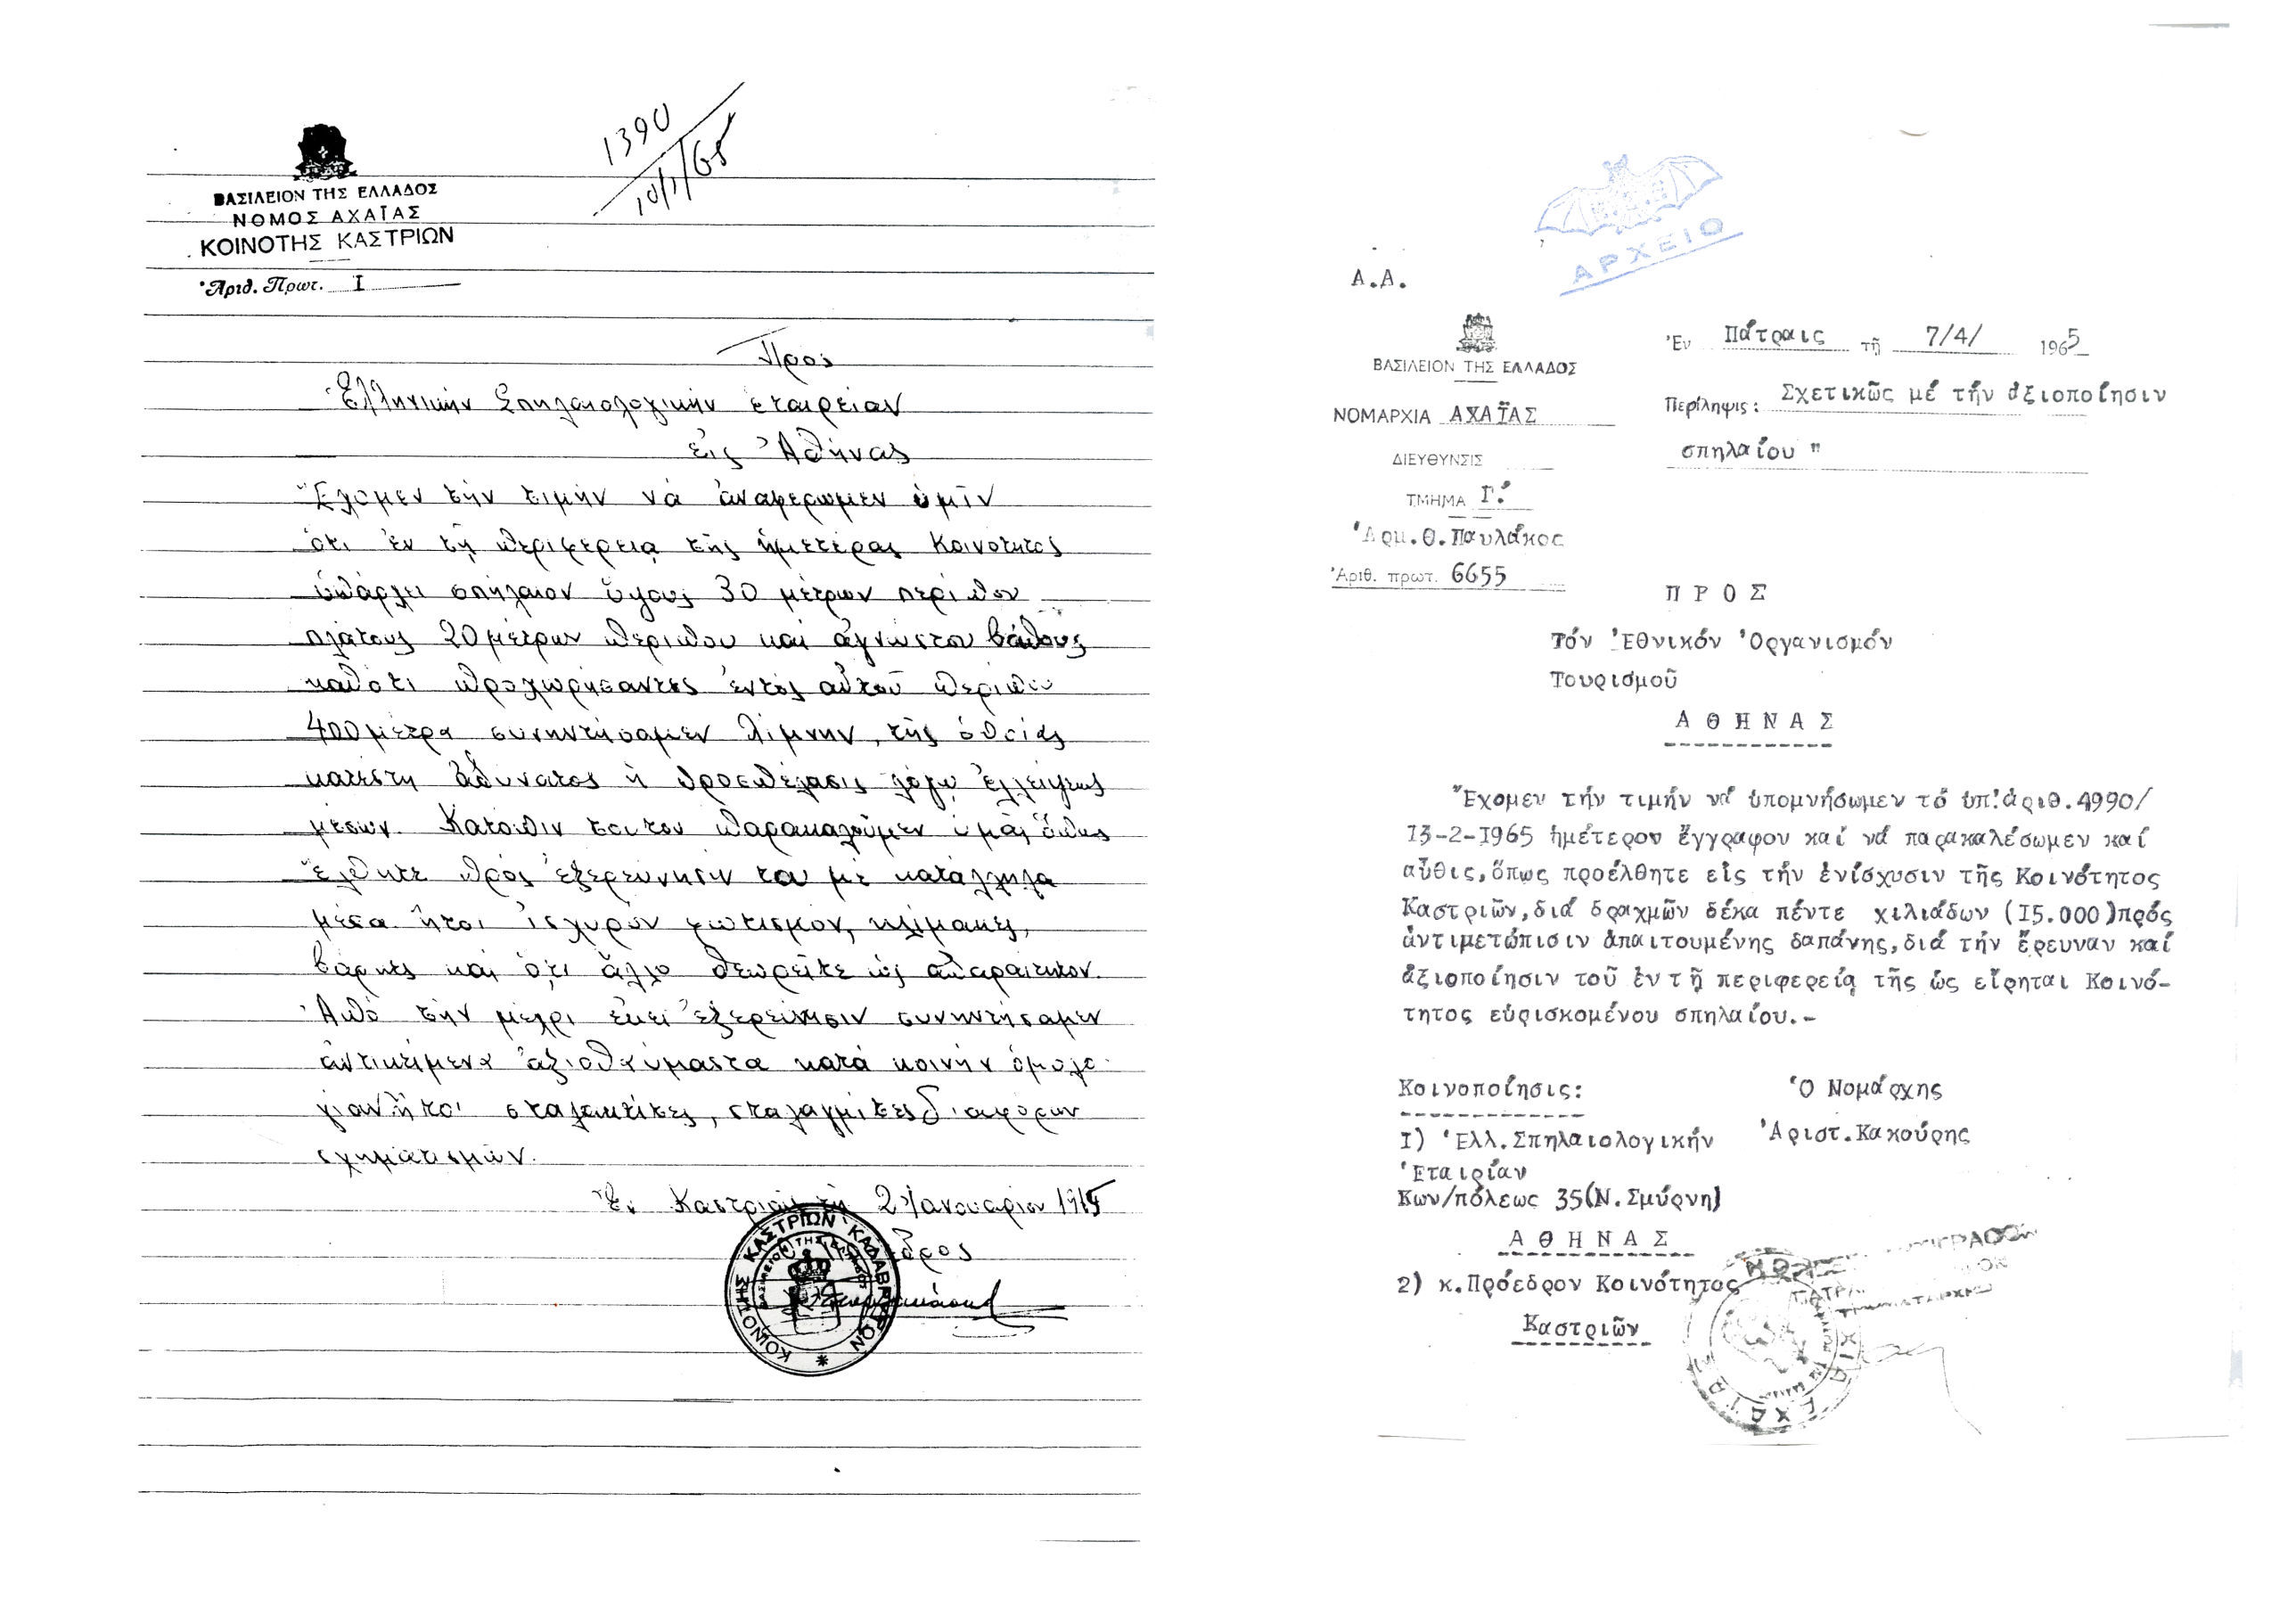 1390
10/1/65
ΒΑΣΙΛΕΙΟΝ ΤΗΣ ΕΛΛΑΔΟΣ
ΝΟΜΟΣ ΑΧΑΪΑΣ
ΚΟΙΝΟΤΗΣ ΚΑΣΤΡΙΩΝ
Ἀριθ. Πρωτ. I
Πρός
Ἑλληνικήν Σπηλαιολογικήν ἑταιρείαν
εἰς Ἀθήνας
Ἔχομεν τήν τιμήν νά ἀναφέρωμεν ὑμῖν
ὅτι ἐν τῇ περιφερείᾳ τῆς ἡμετέρας Κοινότητος
ὑπάρχει σπήλαιον ὕψους 30 μέτρων περίπου
πλάτους 20 μέτρων περίπου καί ἀγνώστου βάθους
καθότι προχωρήσαντες ἐντός αὐτοῦ περίπου
400 μέτρα συνηντήσαμεν λίμνην, τῆς ὁποίας
κατέστη ἀδύνατος ἡ προσπέλασις λόγῳ ἐλλείψεως
μέσων. Κατόπιν τούτου παρακαλοῦμεν ὑμᾶς ὅπως
ἔλθητε πρός ἐξερεύνησίν του μέ κατάλληλα
μέσα ἤτοι ἰσχυρόν φωτισμόν, κλίμακες,
βάρκες καί ὅ,τι ἄλλο θεωρεῖτε ὡς ἀπαραίτητον.
Ἀπό τήν μέχρι ἐκεῖ ἐξερεύνησιν συνηντήσαμεν
ἀντικείμενα ἀξιοθαύμαστα κατά κοινήν ὁμολο-
γίαν ἤτοι σταλακτίτες, σταλαγμίτες διαφόρων
σχηματισμῶν.
Ἐν Καστριοῖς τῇ 2 Ἰανουαρίου 1965
ΚΟΙΝΟΤΗΣ ΚΑΣΤΡΙΩΝ ΚΑΛΑΒΡΥΤΩΝ
ΒΑΣΙΛΕΙΟΝ ΤΗΣ ΕΛΛΑΔΟΣ
ΑΡΧΕΙΟ
Α.Α.
ΒΑΣΙΛΕΙΟΝ ΤΗΣ ΕΛΛΑΔΟΣ
ΝΟΜΑΡΧΙΑ ΑΧΑΪΑΣ
ΔΙΕΥΘΥΝΣΙΣ
ΤΜΗΜΑ Γ!
Ἁρμ.Θ.Παυλάκος
Ἀριθ. πρωτ. 6655
Ἐν Πάτραις τῇ 7/4/ 1965
Περίληψις: Σχετικῶς μέ τήν ἀξιοποίησιν
σπηλαίου "
Π Ρ Ο Σ
Τόν Ἐθνικόν Ὀργανισμόν
Τουρισμοῦ
Α Θ Η Ν Α Σ
Ἔχομεν τήν τιμήν νά ὑπομνήσωμεν τό ὑπ!ἀριθ.4990/
13-2-1965 ἡμέτερον ἔγγραφον καί νά παρακαλέσωμεν καί
αὖθις, ὅπως προέλθητε εἰς τήν ἐνίσχυσιν τῆς Κοινότητος
Καστριῶν, διά δραχμῶν δέκα πέντε χιλιάδων (I5.000)πρός
ἀντιμετώπισιν ἀπαιτουμένης δαπάνης, διά τήν ἔρευναν καί
ἀξιοποίησιν τοῦ ἐν τῇ περιφερείᾳ τῆς ὡς εἴρηται Κοινό-
τητος εὑρισκομένου σπηλαίου.-
Κοινοποίησις:
I) Ἑλλ.Σπηλαιολογικήν
Ἑταιρίαν
Κων/πόλεως 35(Ν.Σμύρνη)
Α Θ Η Ν Α Σ
2) κ.Πρόεδρον Κοινότητος
Καστριῶν
Ὁ Νομάρχης
Ἀριστ.Κακούρης